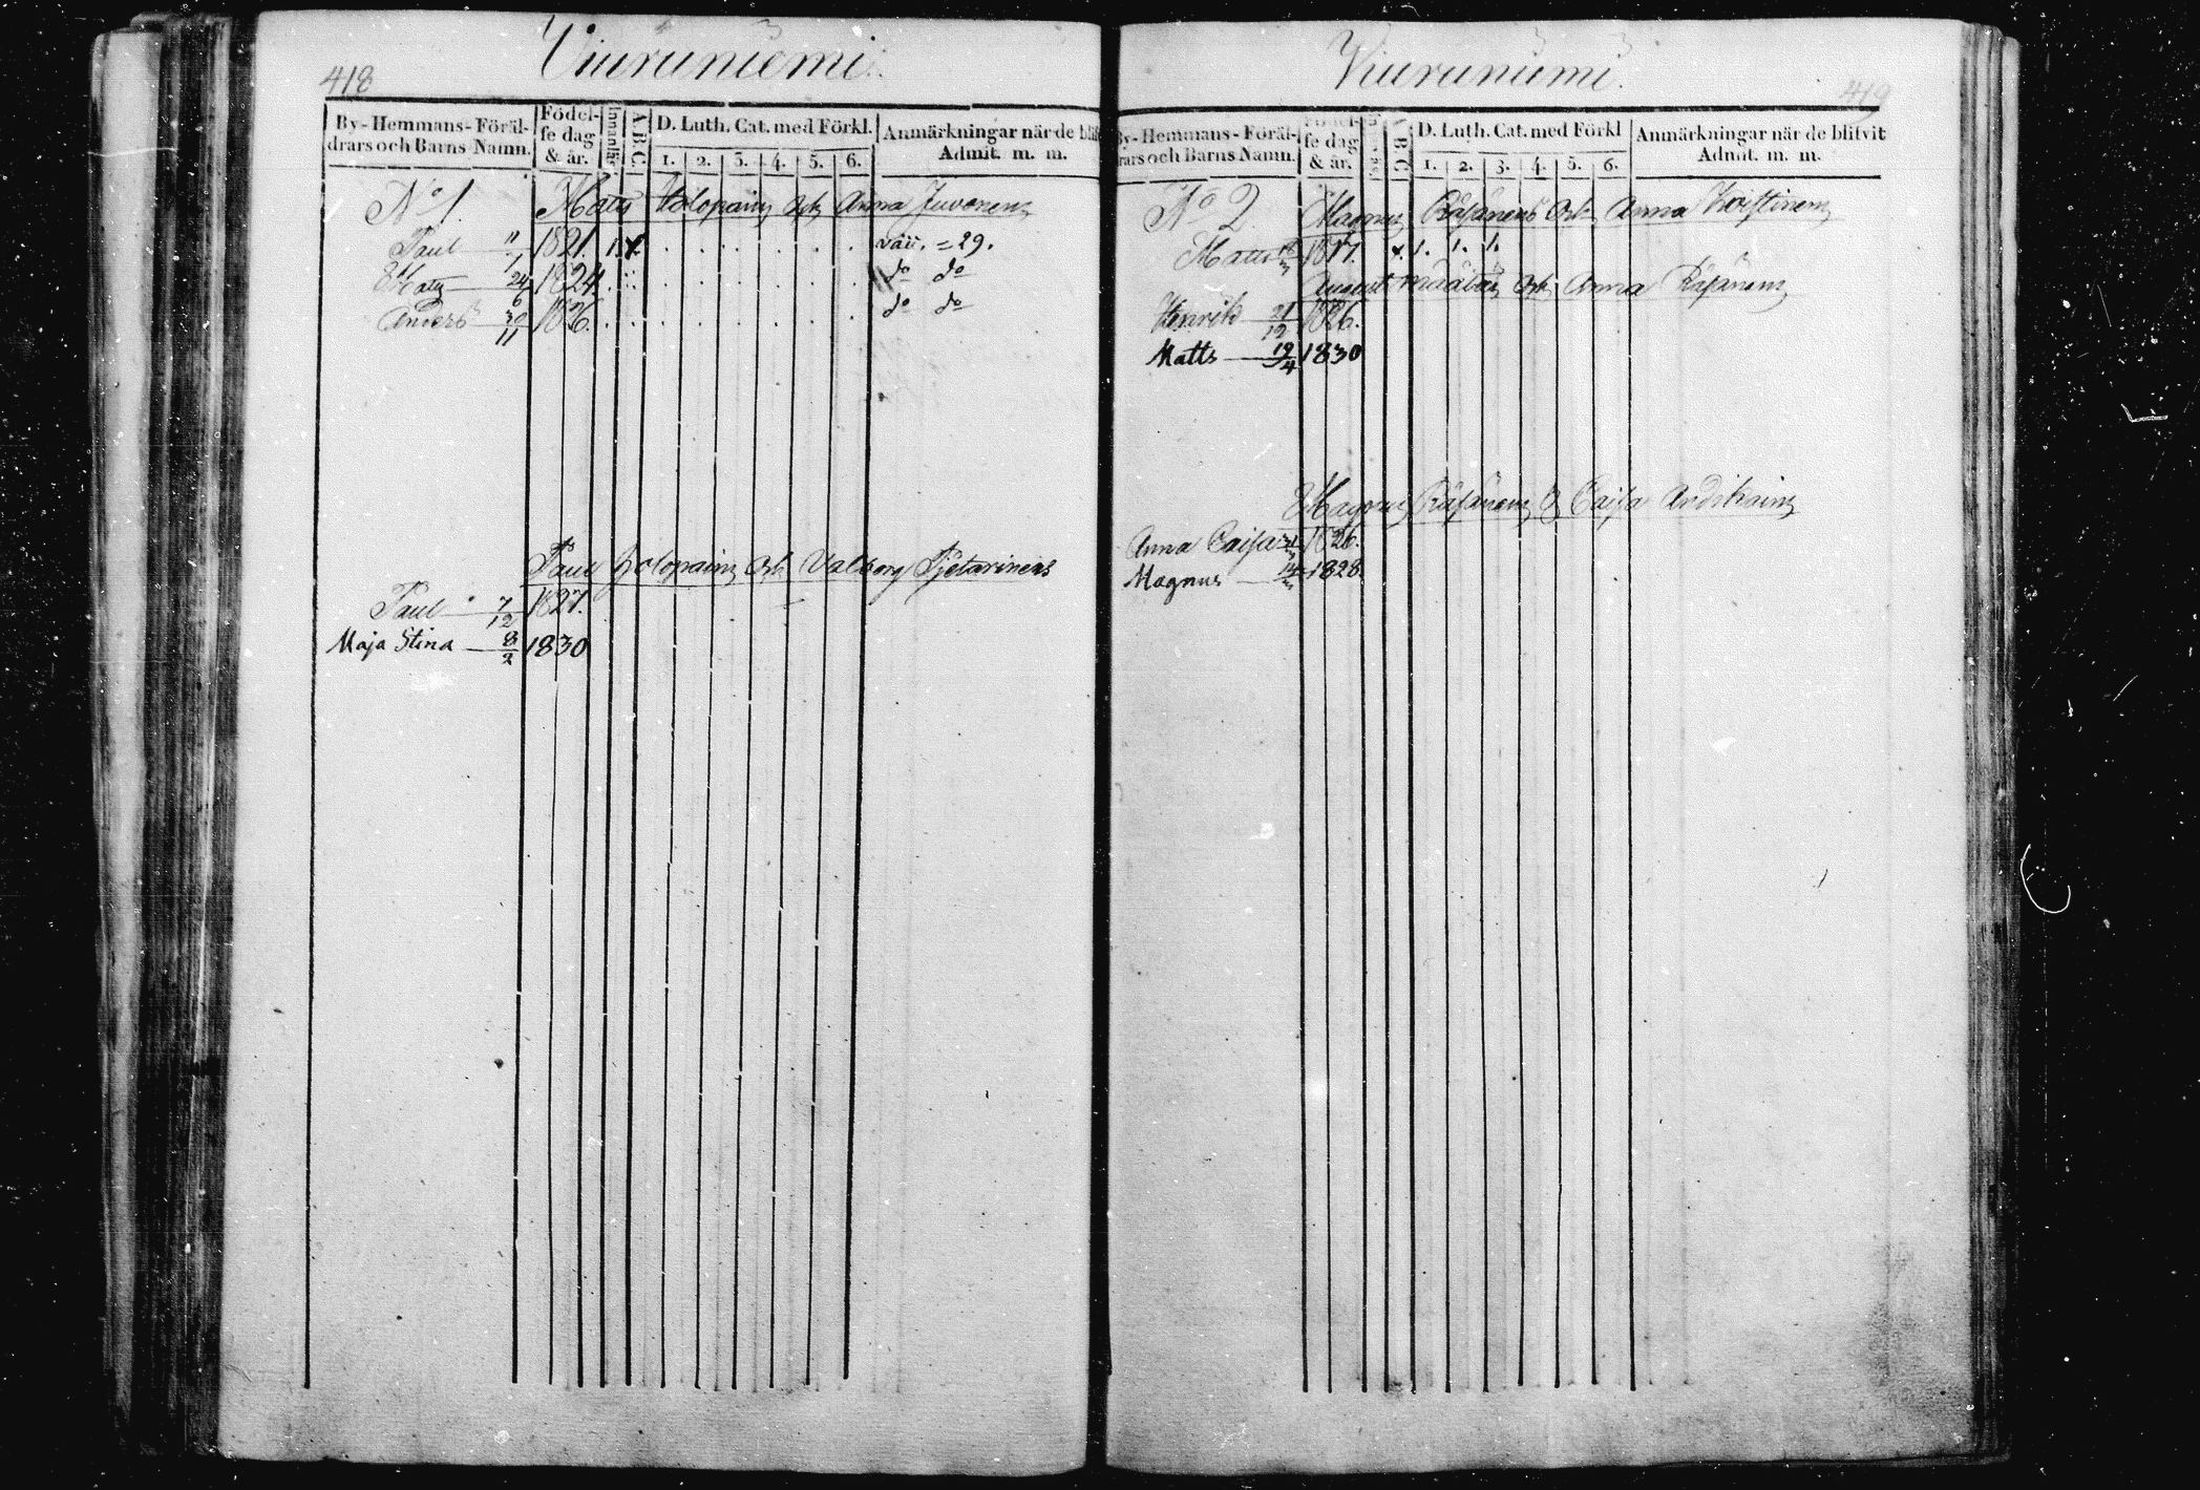 418
Viuruniemi.
By-Hemmans-Föräl-
drars och Barns Namn.
Födel-
se dag
& år.
Innanläs
A.B.C.
D. Luth. Cat. med Förkl.
1. 2. 3. 4. 5. 6.
Anmärkningar när de blif
Admit. m. m.
No 1. Mats Holopain och Anna Juvonen
Paul 11/1 1821. 1. = 29.
Mats 24/6 1824. do do
Anders 30/11 1826. do do
Paul Holopain och Valborg Tjetavinens
Paul 7/12 1827.
Maja Stina 8/2 1830
Viuruniemi.
419
By-Hemmans-Föräl-
drars och Barns Namn.
Födel-
se dag
& år.
A.B.C.
D. Luth. Cat. med Förkl
1. 2. 3. 4. 5. 6.
Anmärkningar när de blifvit
Admit. m. m.
No 2. Magnus Räsänens och Anna
Matts 1817. 1. 1. 1.
August och Anna Räsänen
Henrik 21/12 1826.
Matts 19/4 1830
Magnus Räsänen & Caisa
Anna Caisa 1826.
Magnus 1828.